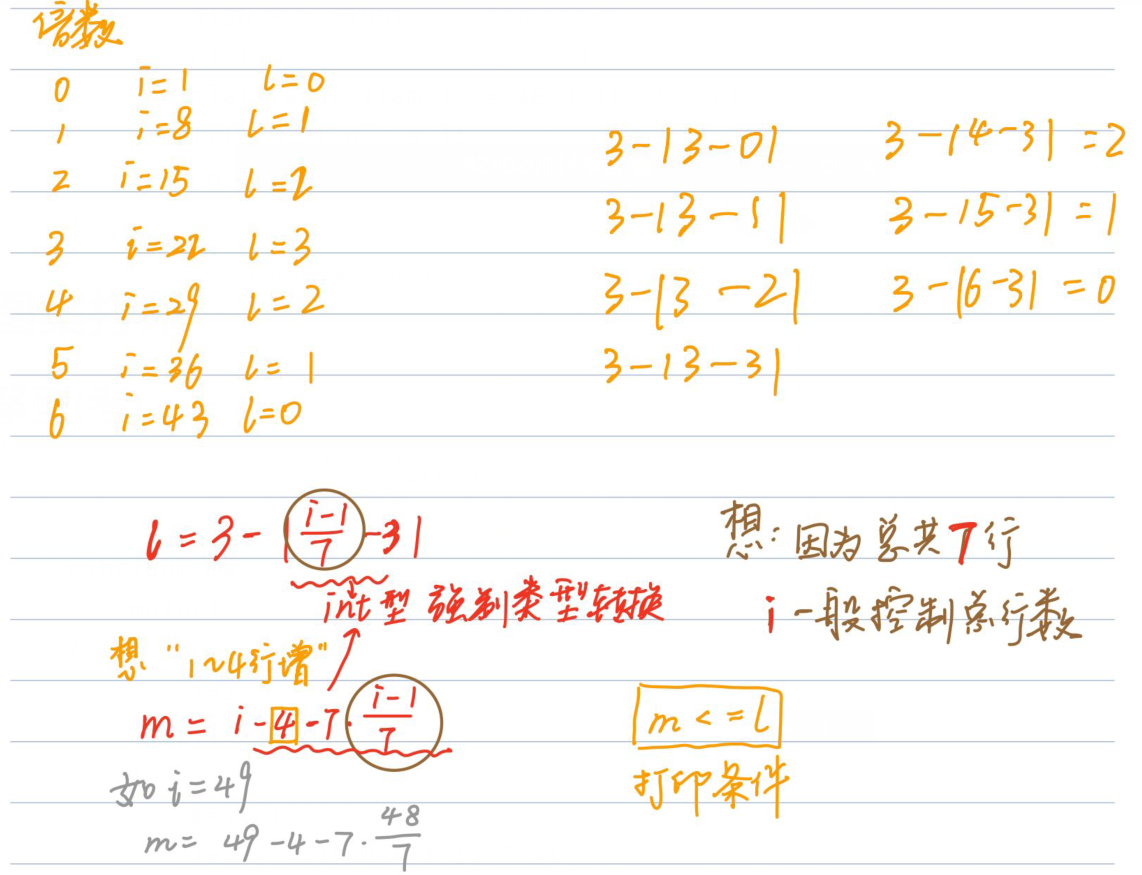 倍数
0 i=1 l=0
1 i=8 l=1
2 i=15 l=2
3 i=22 l=3
4 i=29 l=2
5 i=36 l=1
6 i=43 l=0
3-|3-0| 3-|4-3|=2
3-|3-1| 3-|5-3|=1
3-|3-2| 3-|6-3|=0
3-|3-3|
l=3-|(i-1)/7-3|
int型 强制类型转换
想：因为总共7行
i一般控制总行数
想“1~4行增”
m=i-4-7·(i-1)/7
m<=l
打印条件
如i=49
m=49-4-7·48/7